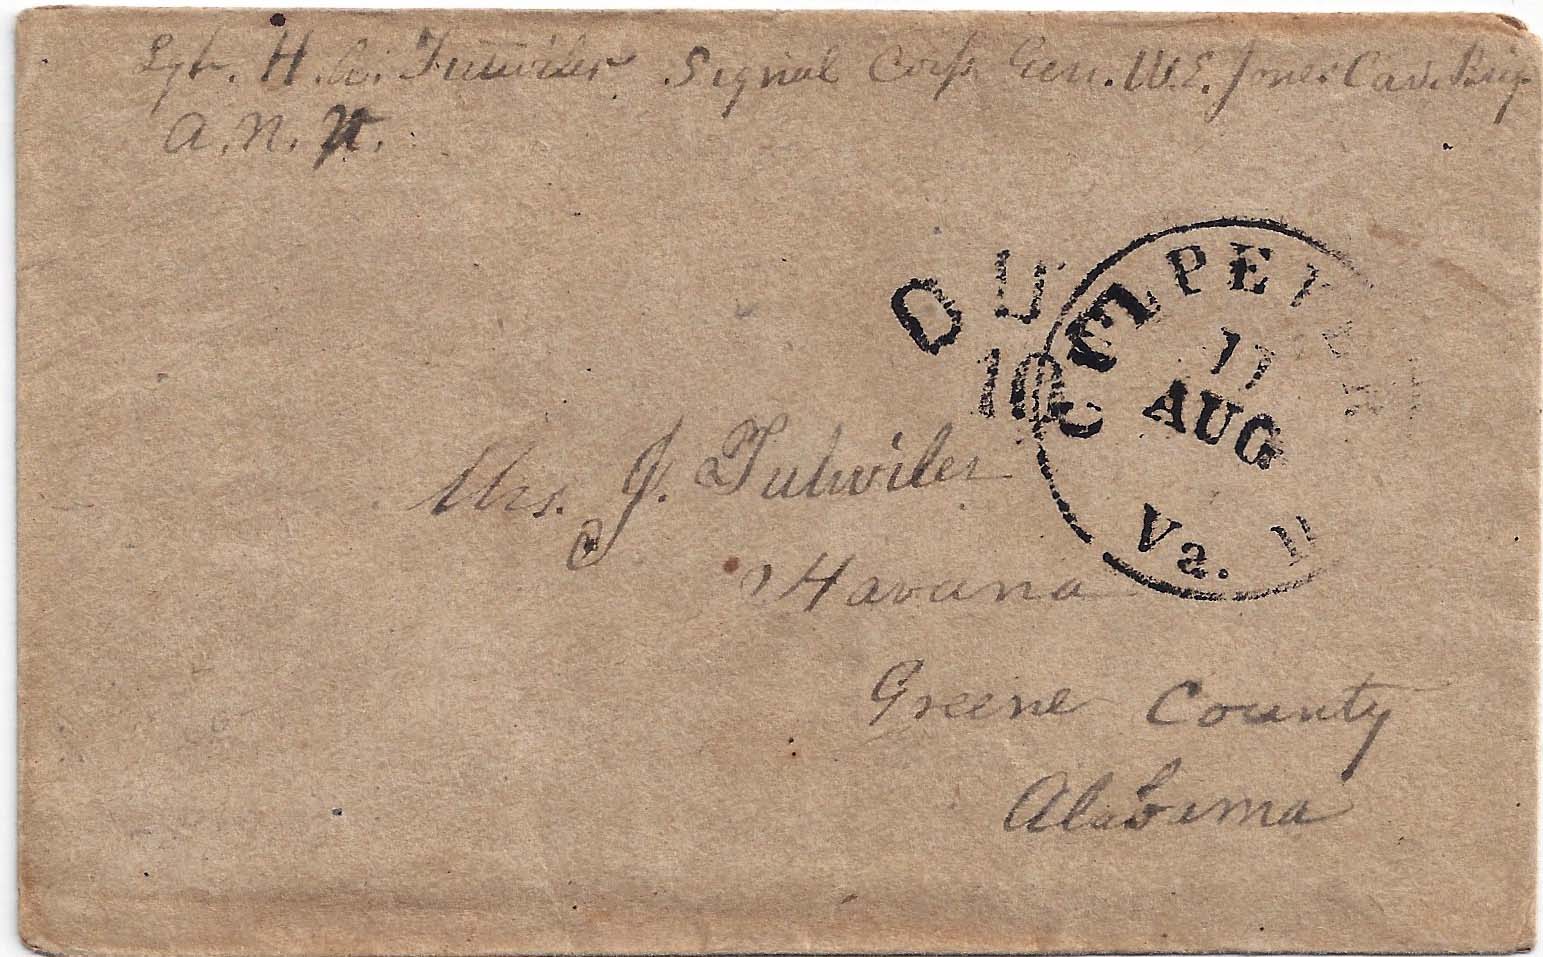 Sgt. H. A. Tutwiler Signal Corps Gen. W.E. Jones Cav. Brig
A. N. V.
DU
10
CULPEPER
11
AUG
Va.
Mrs. J. Tutwiler
Havana
Greene County
Alabama